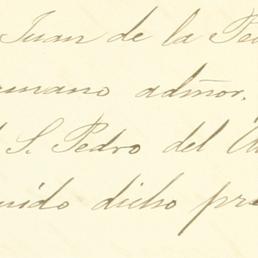 Juan de la Pe
mano admor.
S. Pedro del
uido dicho pr